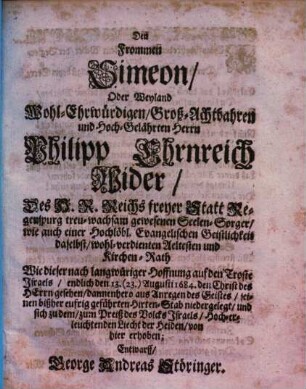 Den
Frommen
Simeon/
Oder Weyland
Wohl-Ehrwürdigen/ Groß-Achtbahren
und Hoch-Gelährten Herrn
Philipp Ehrnreich
Wider/
Des H. R. Reichs freyer Statt Re-
genspurg treu-wachsam gewesenen Seelen-Sorger/
wie auch einer Hochlöbl. Evangelischen Geistlichkeit
daselbst/ wohl-verdienten Aeltesten und
Kirchen-Rath
Wie dieser nach langwüriger Hoffnung auf den Troste
Jsraels/ endlich den 13. (23.) Augusti 1684. den Christ des
HErrn gesehen/ dannenhero aus Anregen des Geistes/ sei-
nen bißher eufrig geführten Hirten-Stab niedergelegt/ und
sich zu dem/ zum Preiß des Volcks Jsraels/ Hoch-er-
leuchtenden Liecht der Heiden/ von
hier erhoben;
Entwarff/
George Andreas Störinger.